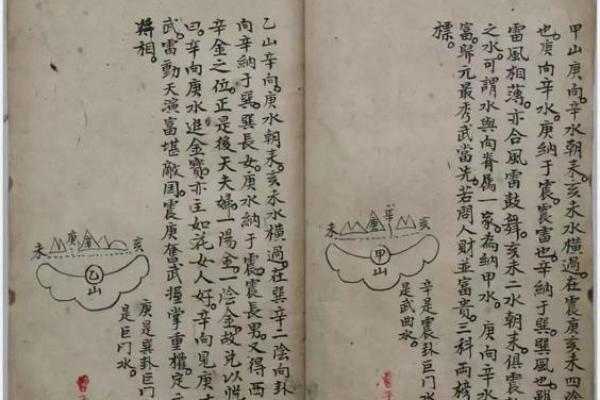 甲山庚向。辛水朝来。亥未水橫過。在震庚亥未四陰
也。庚向辛水。庚納于震。震雷也。辛納于巽。巽風也。雖
雷風相薄。亦合風雷鼓舞。亥未二水朝来。俱震
之水。可謂水與向眷屬一家。為納甲水。庚向辛水
富。歸元最秀武當先。若問人財並富貴。三科両榜
標。
未
庚
辛
亥
甲山
辛是震卦巨門水
是武曲水。
乙山辛向。庚水朝来。亥未水橫過。在巽辛二陰向卦
向辛納于巽。巽長女。庚水納于震。震長男。又得西
辛金之位。正是後天夫婦。一陽金。一陰金。故兑以
曰。辛向庚水進金寶。亦主如花女人好。辛向見庚
武。雷動天演富堪敵国。震庚奮武握掌重權。定
將相。
未
庚
金
亥
乙山
庚是巽卦巨门
是巨门水。